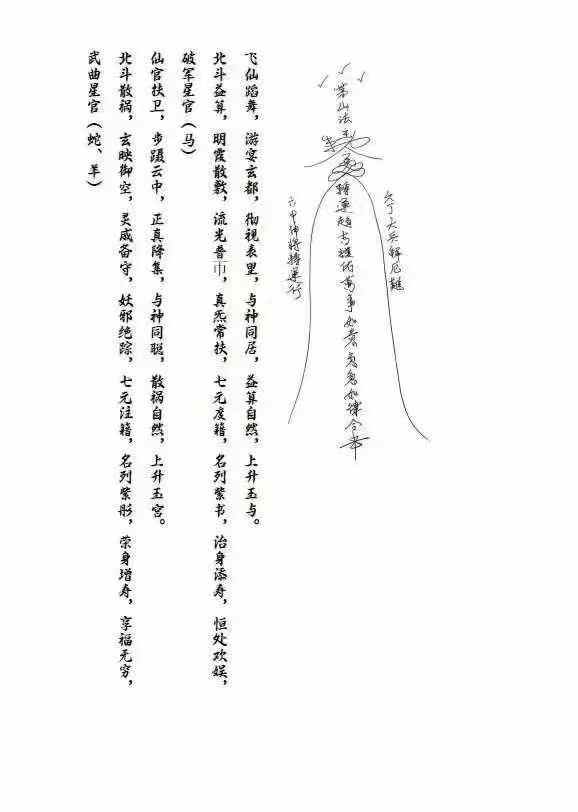 六丁天兵解厄難
茅山法主
轉運趋吉護佑萬事如意急急如律令
六甲神將轉運行
飞仙蹈舞，游宴玄都，彻视表里，与神同居，益算自然，上升玉与。
北斗益算，明霞散敷，流光普帀，真炁常扶，七元度籍，名列紫书，治身添寿，恒处欢娱，
破军星官（马）
仙官扶卫，步蹑云中，正真降集，与神同聪，散祸自然，上升玉宫。
北斗散祸，玄映御空，灵威备守，妖邪绝踪，七元注籍，名列紫彤，荣身增寿，享福无穷，
武曲星官（蛇、羊）